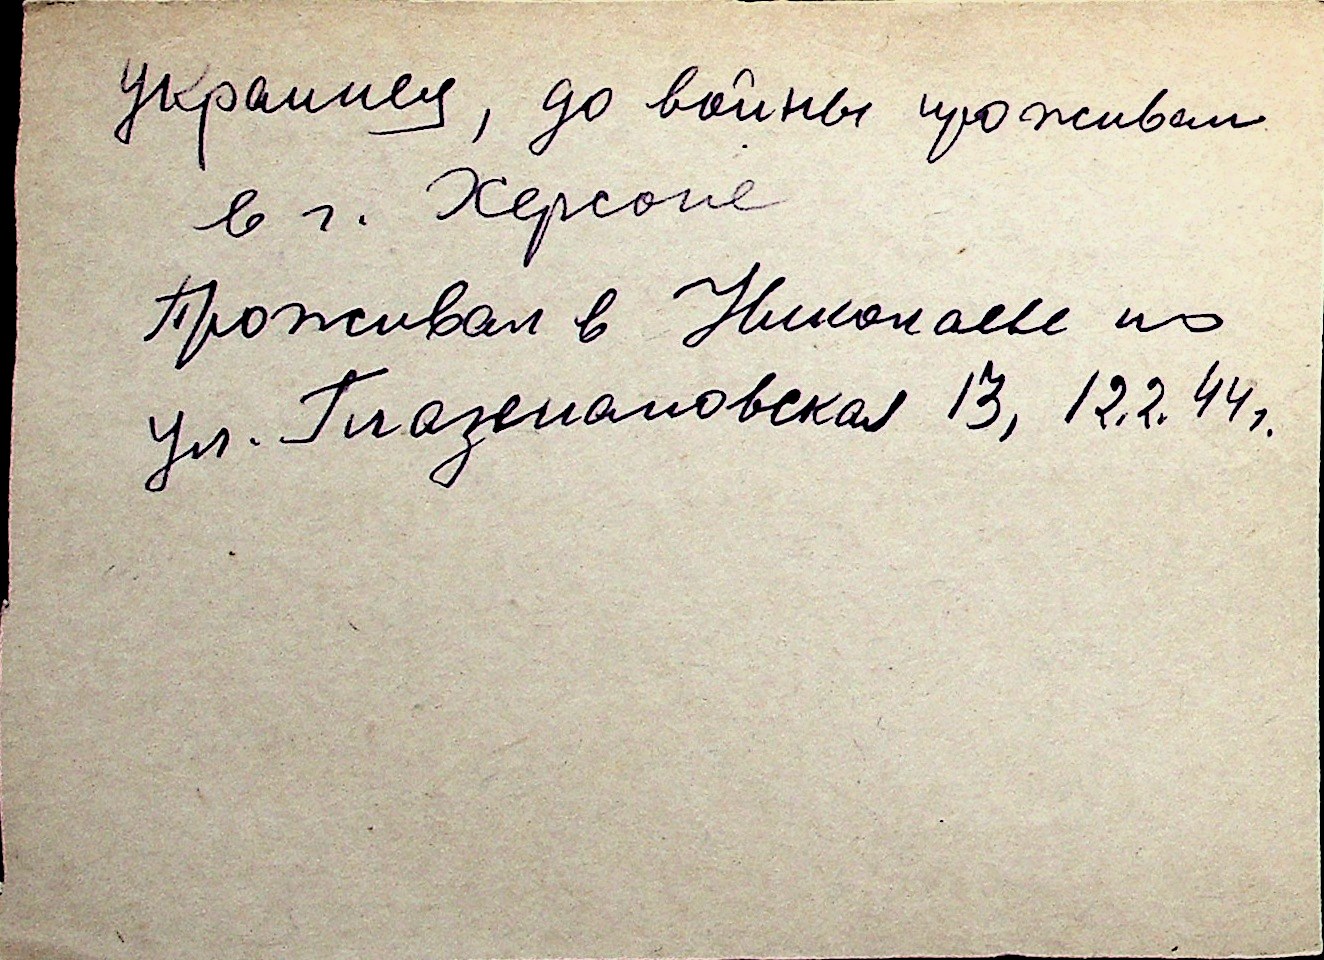 украинец, до войны проживал
в г. Херсоне
Проживал в Николаеве по
ул. Глазенаповская 13, 12.2.44 г.